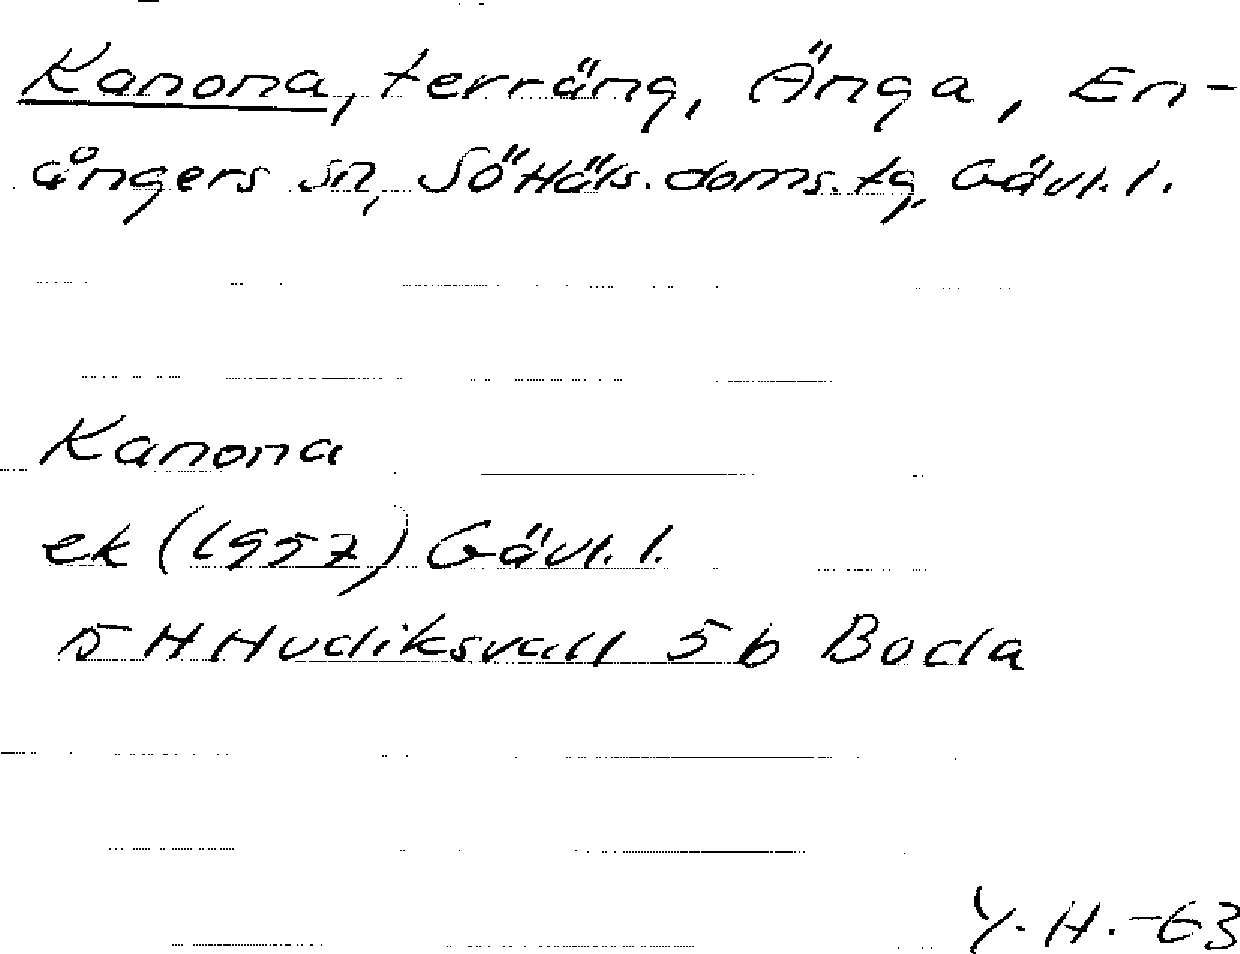 Kanona, terräng, Änga, En-
ångers sn, SöHäls. doms. tg, Gävl. l.
Kanona
ek (1957) Gävl. l.
15 H Hudiksvall 5b Boda
Y. H. -63